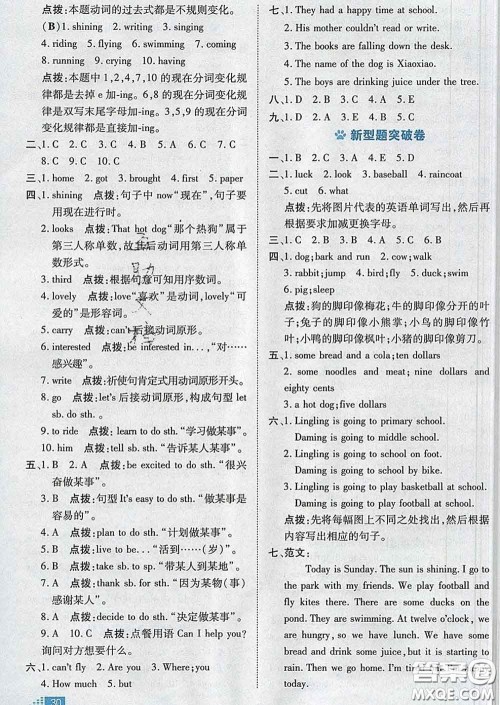 点拨:本题动词的过去式都是不规则变化。
(B) 1. shining 2. writing 3. singing
4. riding 5. flying 6. swimming 7. coming
8. running 9. crying 10. having
点拨:本题中 1、2、4、7、10 的现在分词变化规
律都是去掉 e 加-ing。6、8 的现在分词变化规
律是双写末尾字母加-ing。3、5、9 的现在分词变
化规律都是直接加-ing。
二、1. C 2. B 3. A 4. D 5. E 6. G 7. F
8. C 9. B 10. A
三、1. home 2. got 3. brought 4. first 5. paper
四、1. shining 点拨:句子中 now“现在”,句子要
用现在进行时。
2. looks 点拨:That hot dog“那个热狗”属于
第三人称单数,故其后动词用第三人称单
数形式。
3. third 点拨:根据句意可知用序数词。
4. lovely 点拨:love“喜欢”是动词,lovely“可
爱的”是形容词。
5. carry 点拨:can't 后接动词原形。
6. interested 点拨:be interested in...,“对……
感兴趣”。
7. write 点拨:祈使句肯定式用动词原形开头。
8. go 点拨:let's 后接动词原形,构成句型 let
sb. do sth.。
9. to ride 点拨:learn to do sth.“学习做某事”。
10. him 点拨:tell sb. sth.“告诉某人某事”。
五、1. B 2. A 点拨:be excited to do sth.“很兴
奋做某事”。
3. B 点拨:句型 It's easy to do sth.“做某事是
容易的”。
4. A 点拨:plan to do sth.“计划做某事”。
5. B 点拨:live to be...“活到……(岁)”。
6. A 点拨:take sb. to sp.“带某人到某地”。
7. B 点拨:thank sb. for sth.“因为某物(事)
感谢某人”。
8. A 点拨:decide to do sth.“决定做某事”。
9. A 10. C 点拨:点餐用语 Can I help you? 询
问对方想要什么。
六、1. can't fly 2. Are you 3. Where;you
4. How much 5. but
30
七、1. They had a happy time at school.
2. His mother couldn't read or write.
3. The books are falling down the desk.
4. The name of the dog is Xiaoxiao.
5. The boys are drinking juice under the tree.
八、1. D 2. B 3. C 4. A 5. E
九、1. B 2. B 3. C 4. A 5. C
新型题突破卷
一、1. B 2. C 3. C 4. A 5. C
二、1. duck 2. look 3. baseball 4. raincoat
5. cut 6. what
点拨:先将图片代表的英语单词写出,然后根
据要求加减更换字母。
四、1. dog;bark and run 2. cow; walk
3. rabbit;jump 4. bird; fly 5. duck;swim
6. pig;sleep
点拨:狗的脚印像梅花;牛的脚印像分开的叶
子;兔子的脚印像小熊掌;小鸟的脚印像竹
叶;小鸭的脚印像枫叶;小猪的脚印像剪刀。
五、1. some bread and a cola;ten dollars
2. some noodles and meat; nine dollars and
eighty cents
3. a hot dog;five dollars
六、1. Lingling is going to primary school.
Daming is going to middle school.
2. Lingling is going to school on foot.
Daming is going to school by bike.
3. Lingling is going to play basketball at school.
Daming is going to play football at school.
点拨:先将每幅图上不同之处找出,然后根据
内容写出相应的句子。
七、范文:
Today is Sunday. The sun is shining. I go to
the park with my friends. We play football and
fly kites there. There are some ducks on the
pond. They are swimming. At twelve o'clock, we
are hungry, so we have lunch. We have some
bread and drinks. I'm
today.
答案圈
MXQE.COM